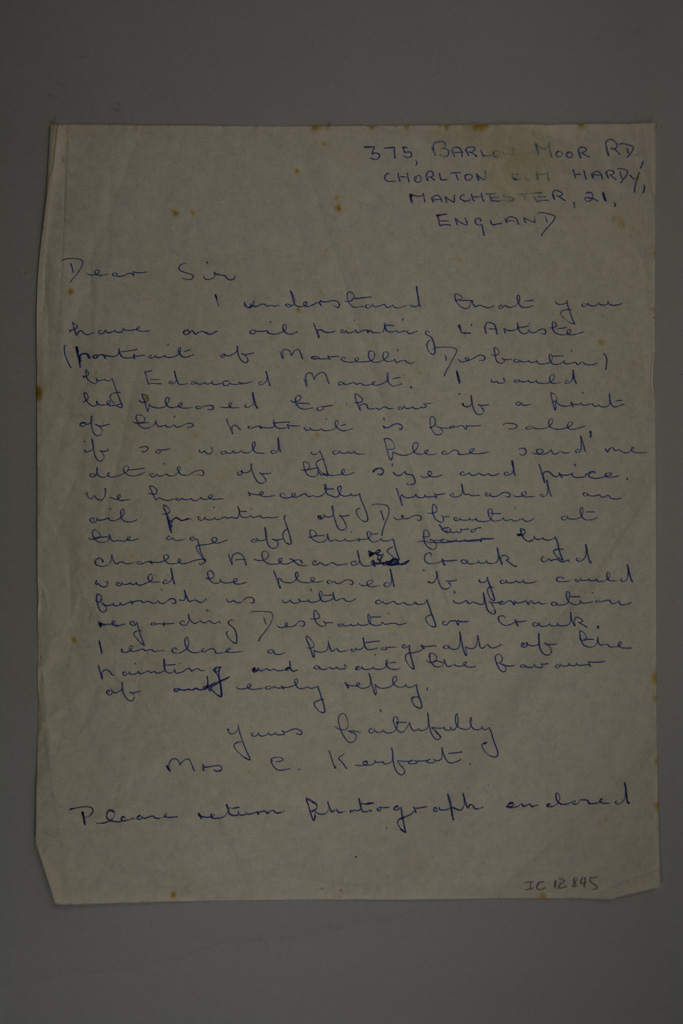 375, BARLOW MOOR RD
CHORLTON HARDY,
MANCHESTER, 21,
ENGLAND
Dear Sir
I understand that you
have an oil painting L'Artiste
(portrait of Marcellin Desboutin)
by Edouard Manet. I would
be pleased to know if a print
of this portrait is for sale,
if so would you please send me
details of the size and price.
We have recently purchased an
oil painting of Desboutin at
the age of thirty two by
Charles Alexandre Crauk and
would be pleased if you could
furnish us with any information
regarding Desboutin or Crauk.
I enclose a photograph of the
painting and await the favour
of early reply.
Yours faithfully
Mrs C. Kerfoot.
Please return photograph enclosed
IC 12845